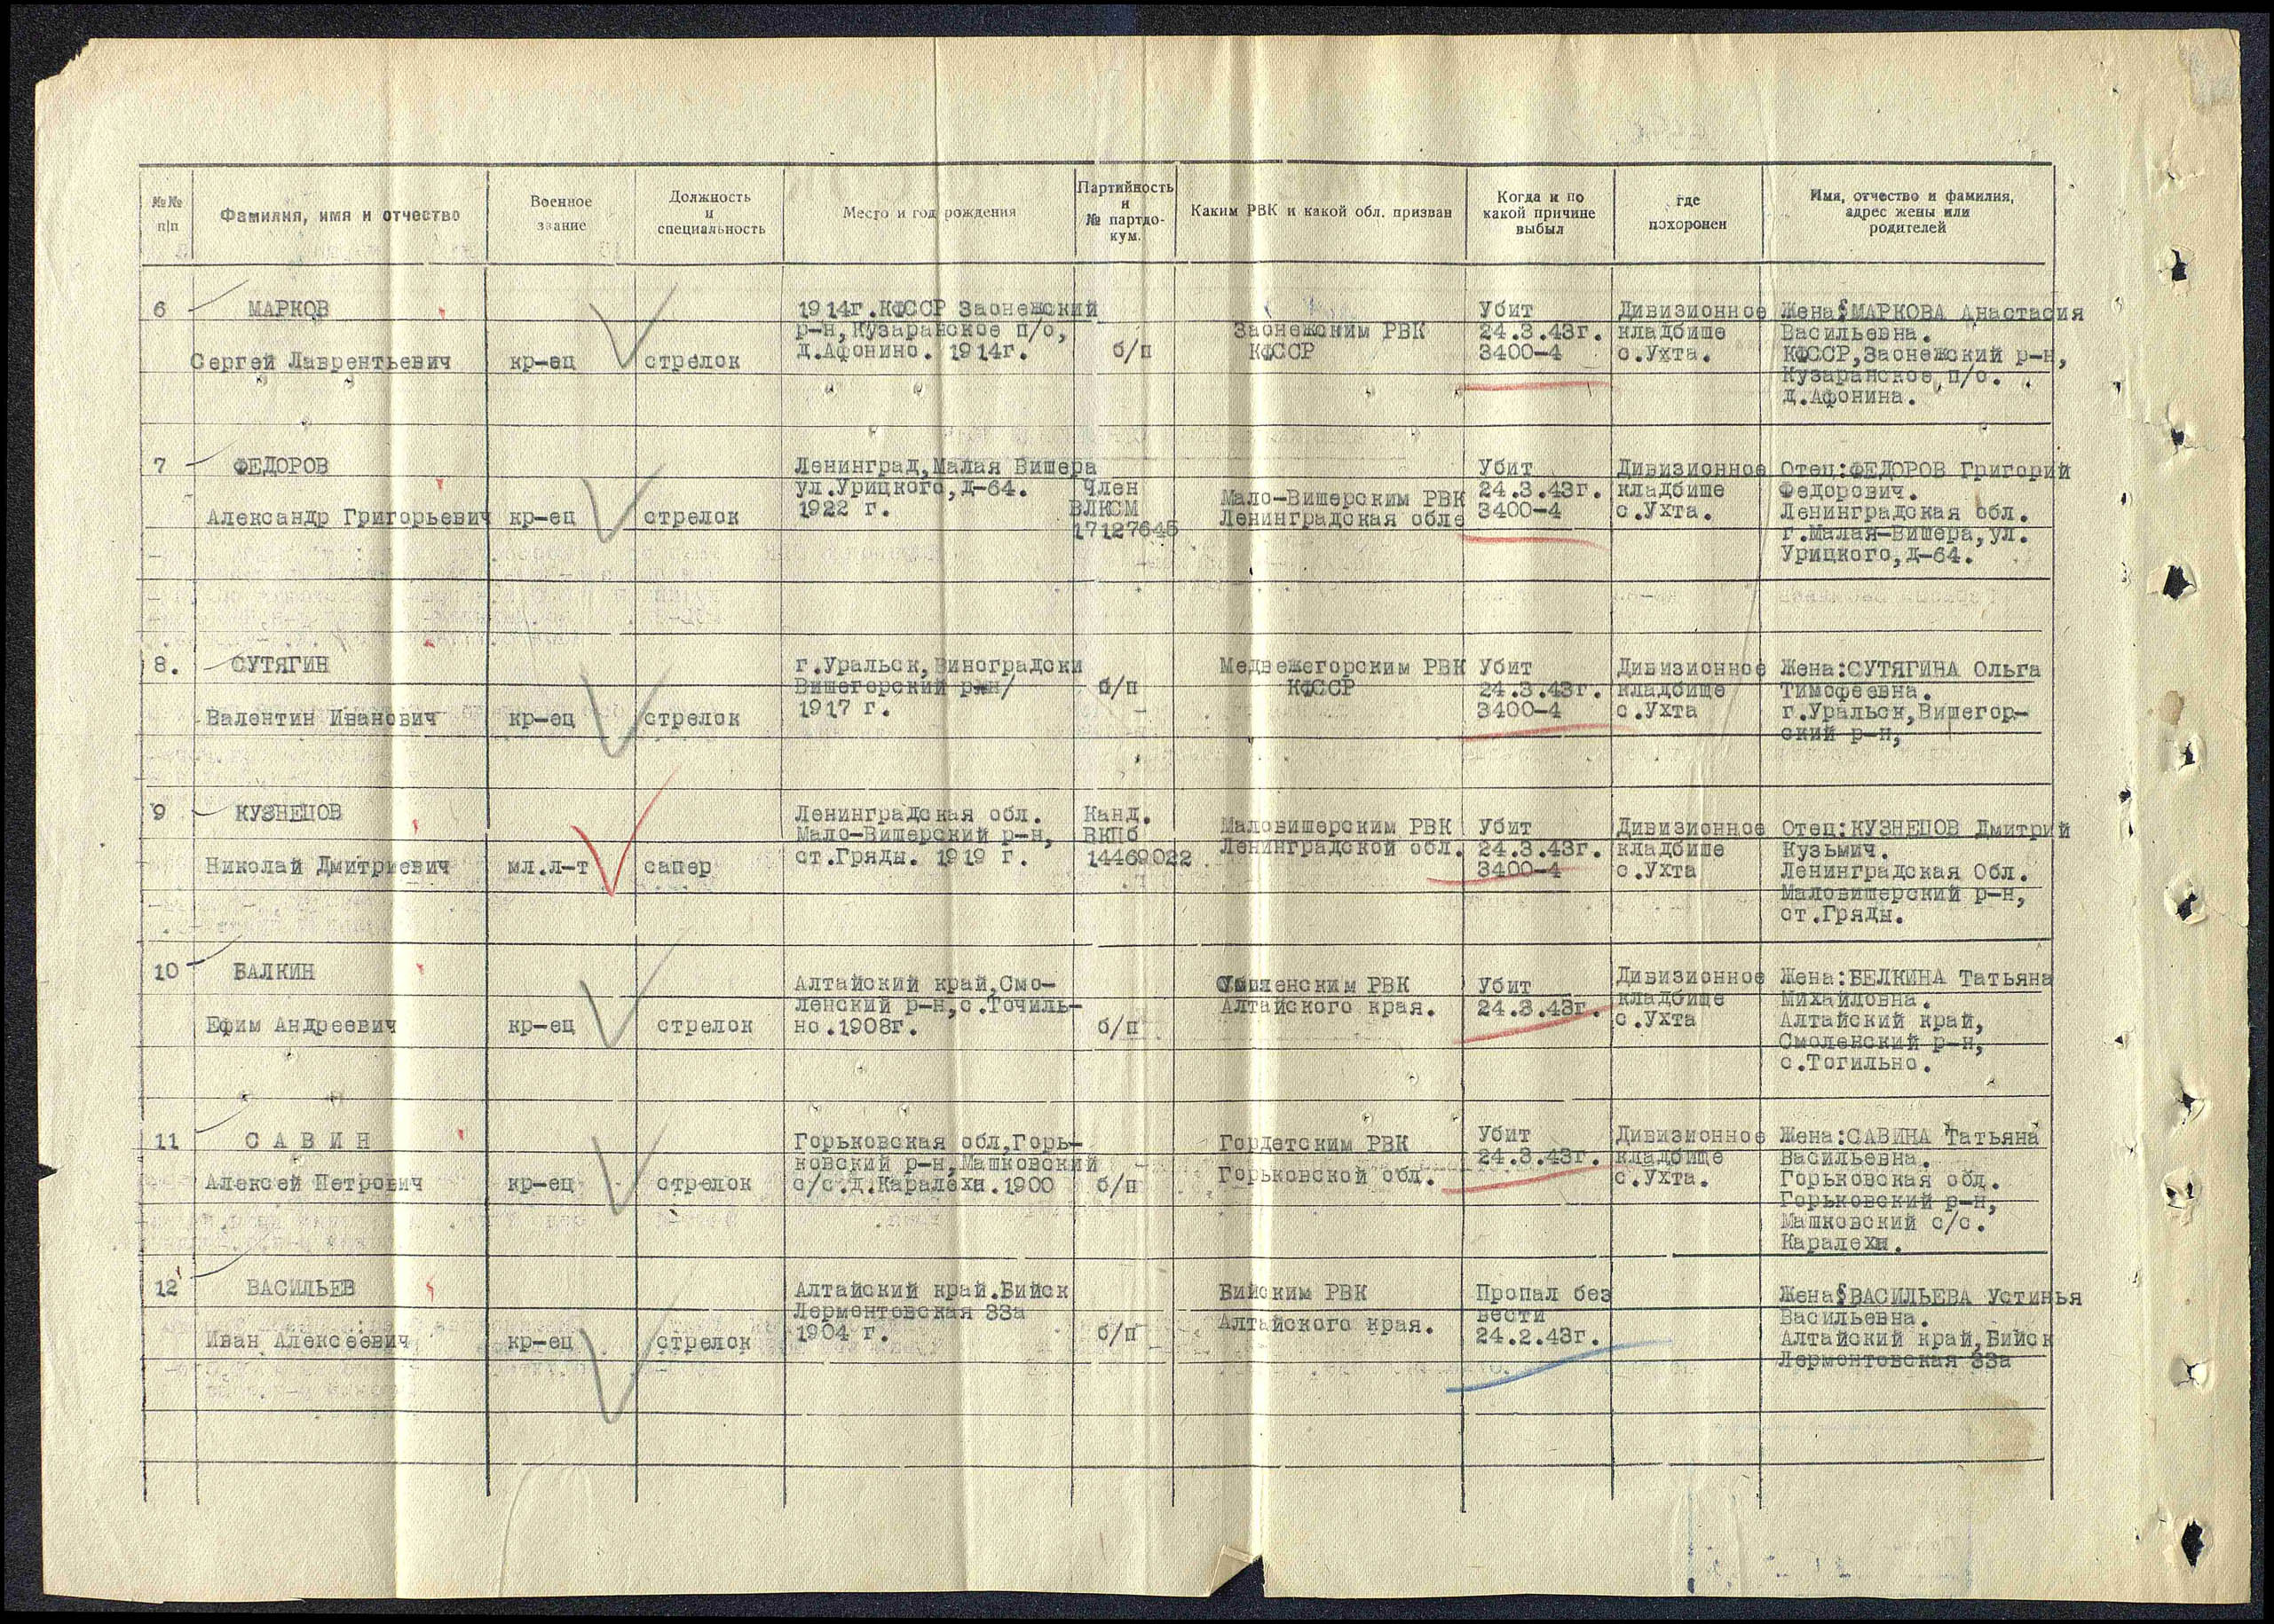 №№ п|п
Фамилия, имя и отчество
Военное звание
Должность и специальность
Место и год рождения
Партийность и № партдокум.
Каким РВК и какой обл. призван
Когда и по какой причине выбыл
где похоронен
Имя, отчество и фамилия, адрес жены или родителей
6
МАРКОВ
Сергей Лаврентьевич
кр-ец
стрелок
1914г.КФССР Заонежский
р-н,Кузаранское п/о,
д.Афонино. 1914г.
б/п
Заонежским РВК
КФССР
Убит
24.3.43г.
3400-4
Дивизионное
кладбише
с.Ухта.
Жена:МАРКОВА Анастасия
Васильевна.
КФССР,Заонежский р-н,
Кузаранское п/о.
д.Афонина.
7
ФЕДОРОВ
Александр Григорьевич
кр-ец
стрелок
Ленинград,Малая Вишера
ул.Урицкого,д-64.
1922 г.
Член
ВЛКСМ
17127645
Мало-Вишерским РВК
Ленинградская обле
Убит
24.3.43г.
3400-4
Дивизионное
кладбише
с.Ухта.
Отец:ФЕДОРОВ Григорий
Федорович.
Ленинградская обл.
г.Малая-Вишера,ул.
Урицкого,д-64.
8.
СУТЯГИН
Валентин Иванович
кр-ец
стрелок
г.Уральск,Виноградски
Вишегорский р-н/
1917 г.
б/п
Медвежегорским РВК
КФССР
Убит
24.3.43г.
3400-4
Дивизионное
кладбище
с.Ухта
Жена:СУТЯГИНА Ольга
Тимофеевна.
г.Уральск,Вишегор-
ский р-н,
9
КУЗНЕЦОВ
Николай Дмитриевич
мл.л-т
сапер
Ленинградская обл.
Мало-Вишерский р-н,
ст.Гряды. 1919 г.
Канд.
ВКПб
14469022
Маловишерским РВК
Ленинградской обл.
Убит
24.3.43г.
3400-4
Дивизионное
кладбише
с.Ухта
Отец:КУЗНЕЦОВ Дмитрий
Кузьмич.
Ленинградская Обл.
Маловишерский р-н,
ст.Гряды.
10
БАЛКИН
Ефим Андреевич
кр-ец
стрелок
Алтайский край,Смо-
ленский р-н,с.Точиль-
но.1908г.
б/п
РВК
Алтайского края.
Убит
24.3.43г.
Дивизионное
кладбище
с.Ухта
Жена:БЕЛКИНА Татьяна
Михайловна.
Алтайский край,
Смоленский р-н,
с.Тогильно.
11
САВИН
Алексей Петрович
кр-ец
стрелок
Горьковская обл,Горь-
ковский р-н,Машковский
с/с.д.Каралехн.1900
б/п
Гордетским РВК
Горьковской обл.
Убит
24.3.43г.
Дивизионное
кладбище
с.Ухта.
Жена:САВИНА Татьяна
Васильевна.
Горьковская обл.
Горьковский р-н,
Машковский с/с.
Каралехн.
12
ВАСИЛЬЕВ
Иван Алексеевич
кр-ец
стрелок
Алтайский край.Бийск
Лермонтовская 33а
1904 г.
б/п
Бийским РВК
Алтайского края.
Пропал без
вести
24.2.43г.
Жена:ВАСИЛЬЕВА Устинья
Васильевна.
Алтайский край,Бийск
Лермонтовская 33а